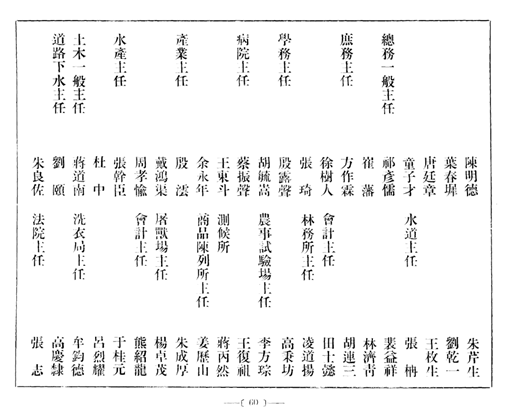 陳明德 朱芹生
葉春墀 劉乾一
唐廷章 王枚生
童子才 水道主任 張 枬
總務一般主任 祁彥儒 裴益祥
崔 藩 林濟青
庶務主任 方作霖 胡連三
徐樹人 會計主任 田士懿
張 琦 林務所主任 凌道揚
學務主任 殷露聲 高秉坊
胡毓嵩 農事試驗場主任 李方琮
病院主任 蔡振聲 王復祖
王東斗 測候所 蔣丙然
余永年 商品陳列所主任 姜歷山
產業主任 殷 澐 朱成厚
戴鴻渠 屠獸場主任 楊卓茂
周孝愉 會計主任 熊紹龍
水產主任 張幹臣 于桂元
杜 中 呂烈耀
土木一般主任 蔣道南 洗衣局主任 牟鈞德
道路下水主任 劉 頤 高慶隸
朱良佐 法院主任 張 志
—( 60 )—